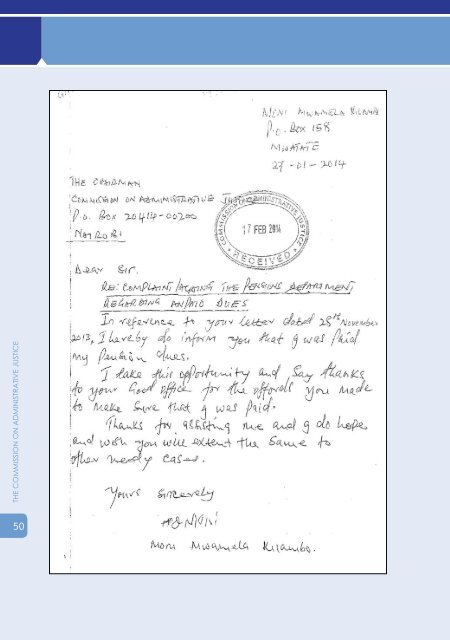 MONI MWAMELA
P.O. BOX 158
MWATATE
27-01-2014
THE CHAIRMAN
COMMISSION ON ADMINISTRATIVE
P.O. BOX 20414-00200
NAIROBI
COMMISSION ON ADMINISTRATIVE JUSTICE
17 FEB 2014
RECEIVED
Dear Sir.
RE: COMPLAINT AGAINST THE PENSIONS DEPARTMENT
REGARDING UNPAID DUES
In reference to your letter dated 28th November
2013, I hereby do inform you that I was paid
my Pension dues.
I take this opportunity and say thanks
to your Good office for the efforts you made
to make sure that I was paid.
Thanks for assisting me and I do hope
and wish you will extent the same to
other needy cases.
Yours Sincerely
Moni Mwamela Kirambo.
THE COMMISSION ON ADMINISTRATIVE JUSTICE
50